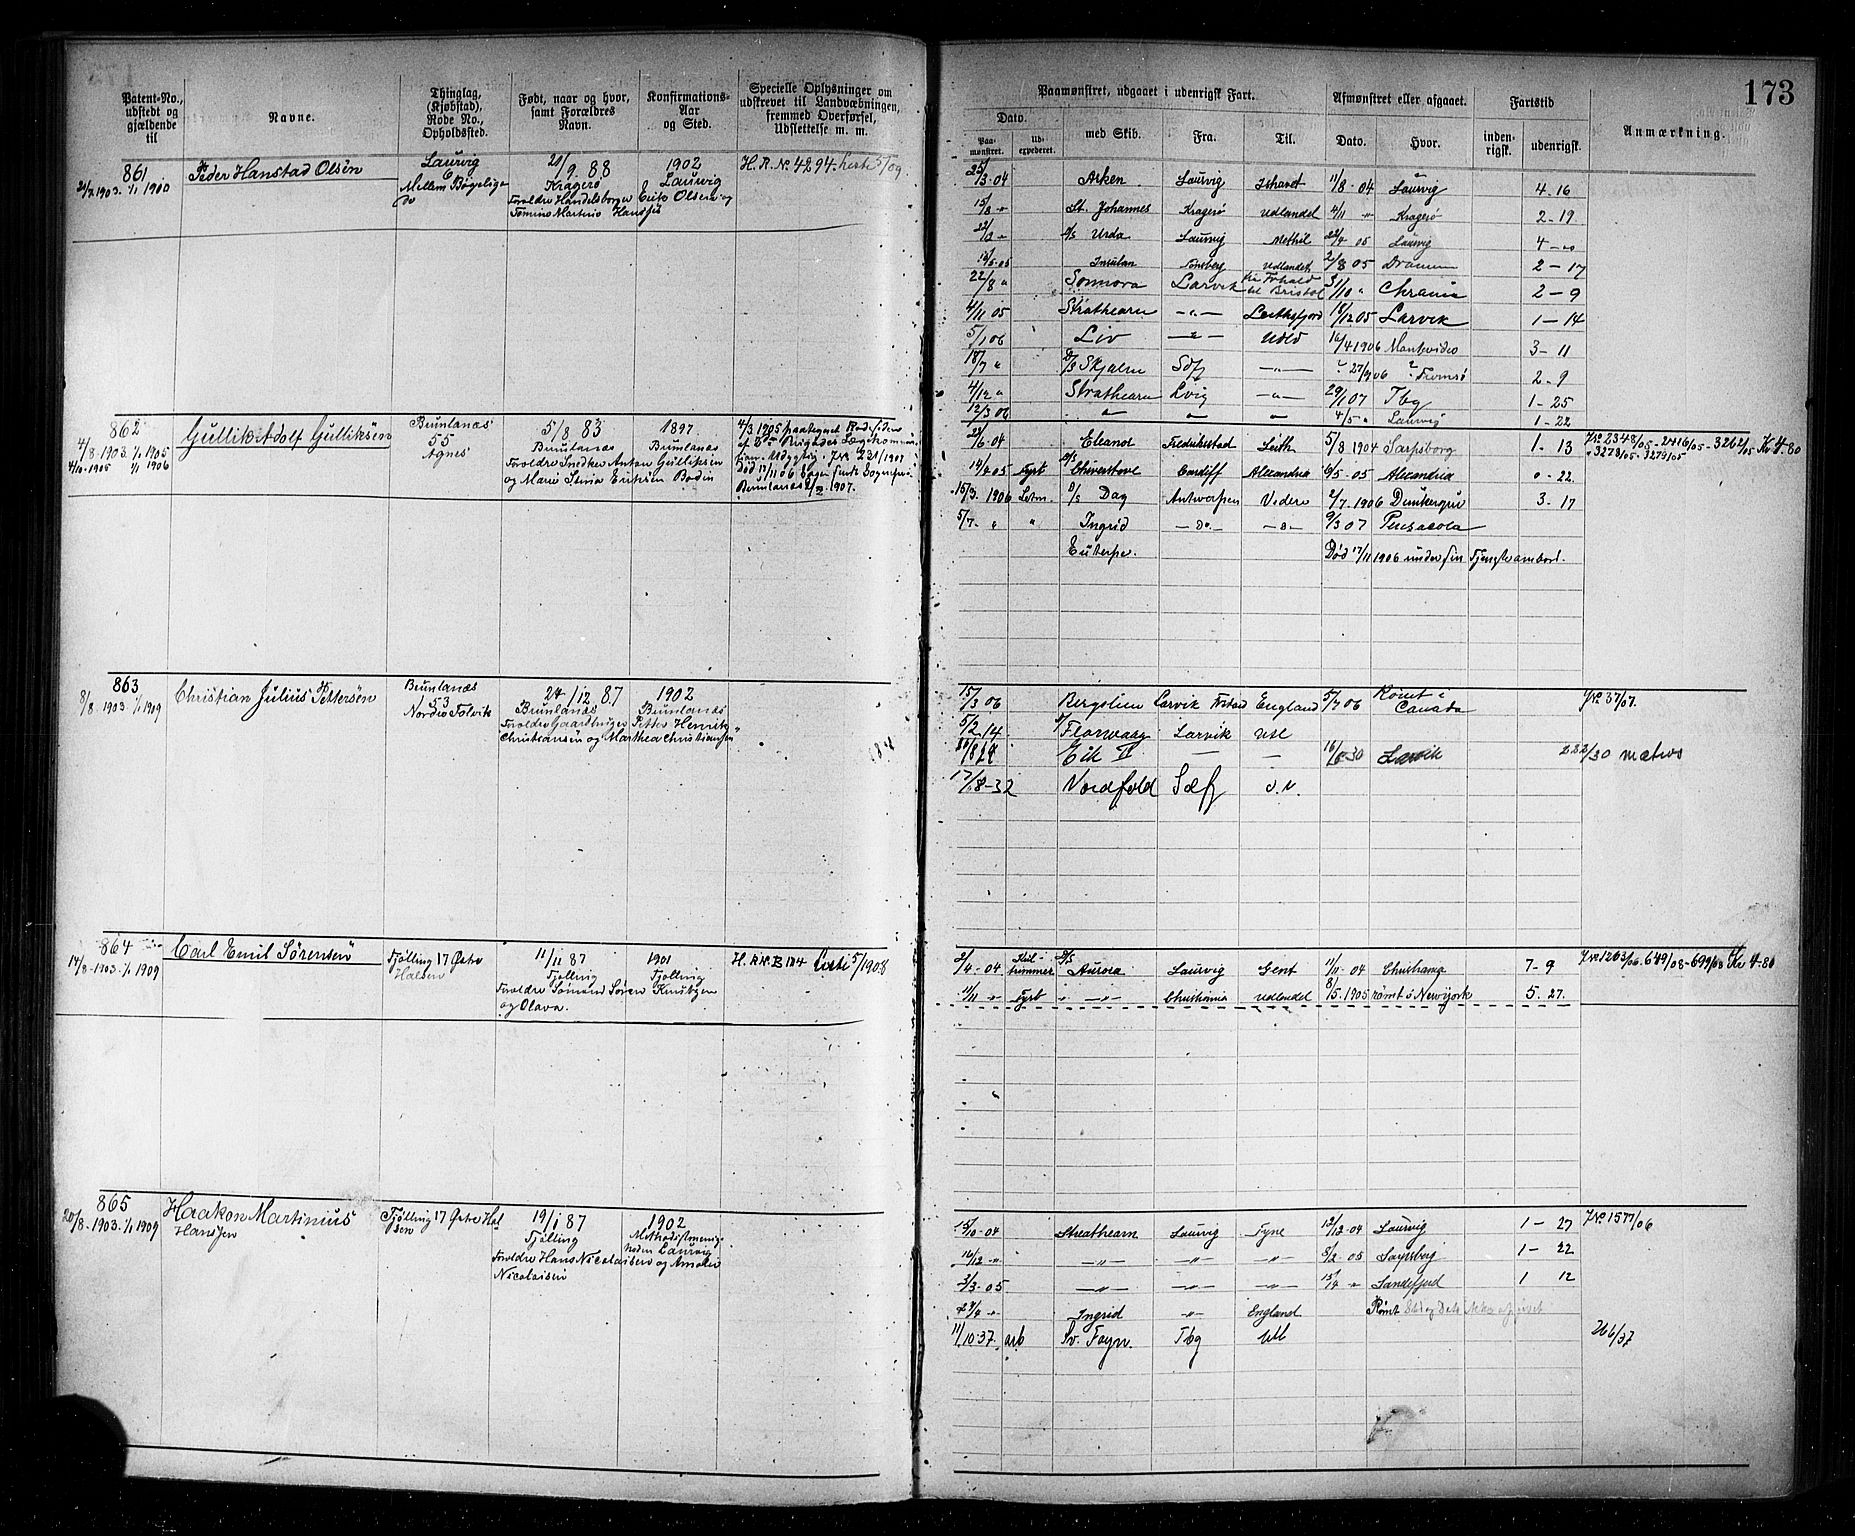 173
Patent-No., udstedt og gjældende til
Navne.
Thinglag, (Kjøbstad), Rode No., Opholdssted.
Født, naar og hvor, samt Forældres Navn.
Konfirmations-Aar og Sted.
Specielle Oplysninger om udskrevet til Landværbningen, fremmed Overførsel, Udslettelse m. m.
Paamønstret, udgaaet i udenrigsk Fart.
Dato.
Paamønstret.
Udexpederet.
med Skib.
Fra.
Til.
Afmønstret eller afgaaet.
Dato.
Hvor.
Fartstid
indenrigsk.
udenrigsk.
Anmærkning.
861
21/7 1903. 1/1 1910
Peder Hanstad Olsen
Laurvig
6
Mellem Bøgelige
20/9. 88
Kragerø
Forældre Handelsborger Erik Olsen og
1902
Laurvig
H. R. No 4294.
25/3-04 Asken Laurvig Ishavet 11/8-04 Laurvig 4-16
15/8 " St. Johannes Kragerø Udlandet 4/11 " Kragerø 2-19
D/S Urda Laurvig Methil 22/4 05 Laurvig
Insulan Tønsberg Udlandet 2/8 05 2-17
22/8 " Sonnora Larvik til Bristol 31/10 " Chrania 2-9
4/11 05 Strathearn -"- 18/12 05 Larvik 1-14
5/1 06 Liv -"- Udld 16/4 1906 Montevideo 3-11
18/7 " D/S Skjalm Sdfj -"- 27/9 06 2-9
4/12 " Strathearn Lvig -"- 29/1 07 Tbg 1-25
12/3 06 " " " 4/5 " Laurvig 1-22
862
4/8 1903. 1/1 1905
4/10 1905 1/1 1906
Gullik Adolf Gulliksen
Brunlanæs
55
Agnes
5/8. 83
Brunlanæs
Forældre Snedker Anton Gulliksen
og Marie Stina Eriksen Bodin
1897
Brunlanæs
Brunlanæs 1907.
22/6-04 Eleanor Fredrikstad Leith 5/8 1904 Sarpsborg 1-13
14/4 05 Fyrb. D/S Cardiff Alexandria 6/5-05 Alexandria 0-22
15/3. 1906 Letm. D/S Dag Antwerpen Videre 2/7. 1906 Dunkerque 3-17
5/7- " " Ingrid -Do.- -"- 9/3 07 Pensacola
Euterpe. Død 17/11 1906 under sin Tjeneste ombord.
J.No 2348/05-2416/05-3262/05 Kr 4-80
3278/05-3279/05
863
8/8-1903. 1/1 1909
Christian Julius Pettersen
Brunlanæs
53
Nordre Tolvik
24/12 87
Brunlanæs
Forældre Gaardbruger Petter Henrik
Christiansen og Marthea Christiansen
1902
Brunlanæs
15/3 06 Bergslien Larvik England 5/7 06 Rømt i Canada
J.No 37/07.
5/2 14 Florvaag Larvik Utl
Eik II — — 16/6 30 Larvik
222/30 matros
17/8-32 Nordfold Sefj o.v.
864
14/8-1903. 1/1 1909
Carl Emil Sørensen
Fjølling 17 Østre
Halsen
11/11 87
Fjølling
Forældre Sømand Søren Knudsen
og Olava.
1901
Fjølling
H. R. No. B 134 5/1908
2/4-04 Kultrimmer D/S Aurora Laurvig Gent 11/11-04 Christiania 7-9
11/11 " Fyrb " -"- Christiania Udlandet 8/5. 1905 rømt i Newyork 5. 27.
J.No 1263/06. 649/08-699/08 Kr 4-80
865
20/8-1903. 1/1 1909
Haakon Martinius
Hanssen
Fjølling 17 Østre Halsen
19/1 87
Fjølling
Forældre Hans Nicolaisen og Amalie
Nicolaisen
1902
Methodistmenigheden Laurvig
15/10-04 Strathearn Laurvig Tyne 12/12-04 Laurvig 1-27
16/12 " -"- " " 8/2-05 Sarpsborg 1-22
3/3-05 -"- -"- -"- 15/4 " Sandefjord 1 12
27/4 " Ingrid -"- England Rømt
11/10 37. arb Sv. Foyn. Tbg Utl
J.No 1577/06
266/37